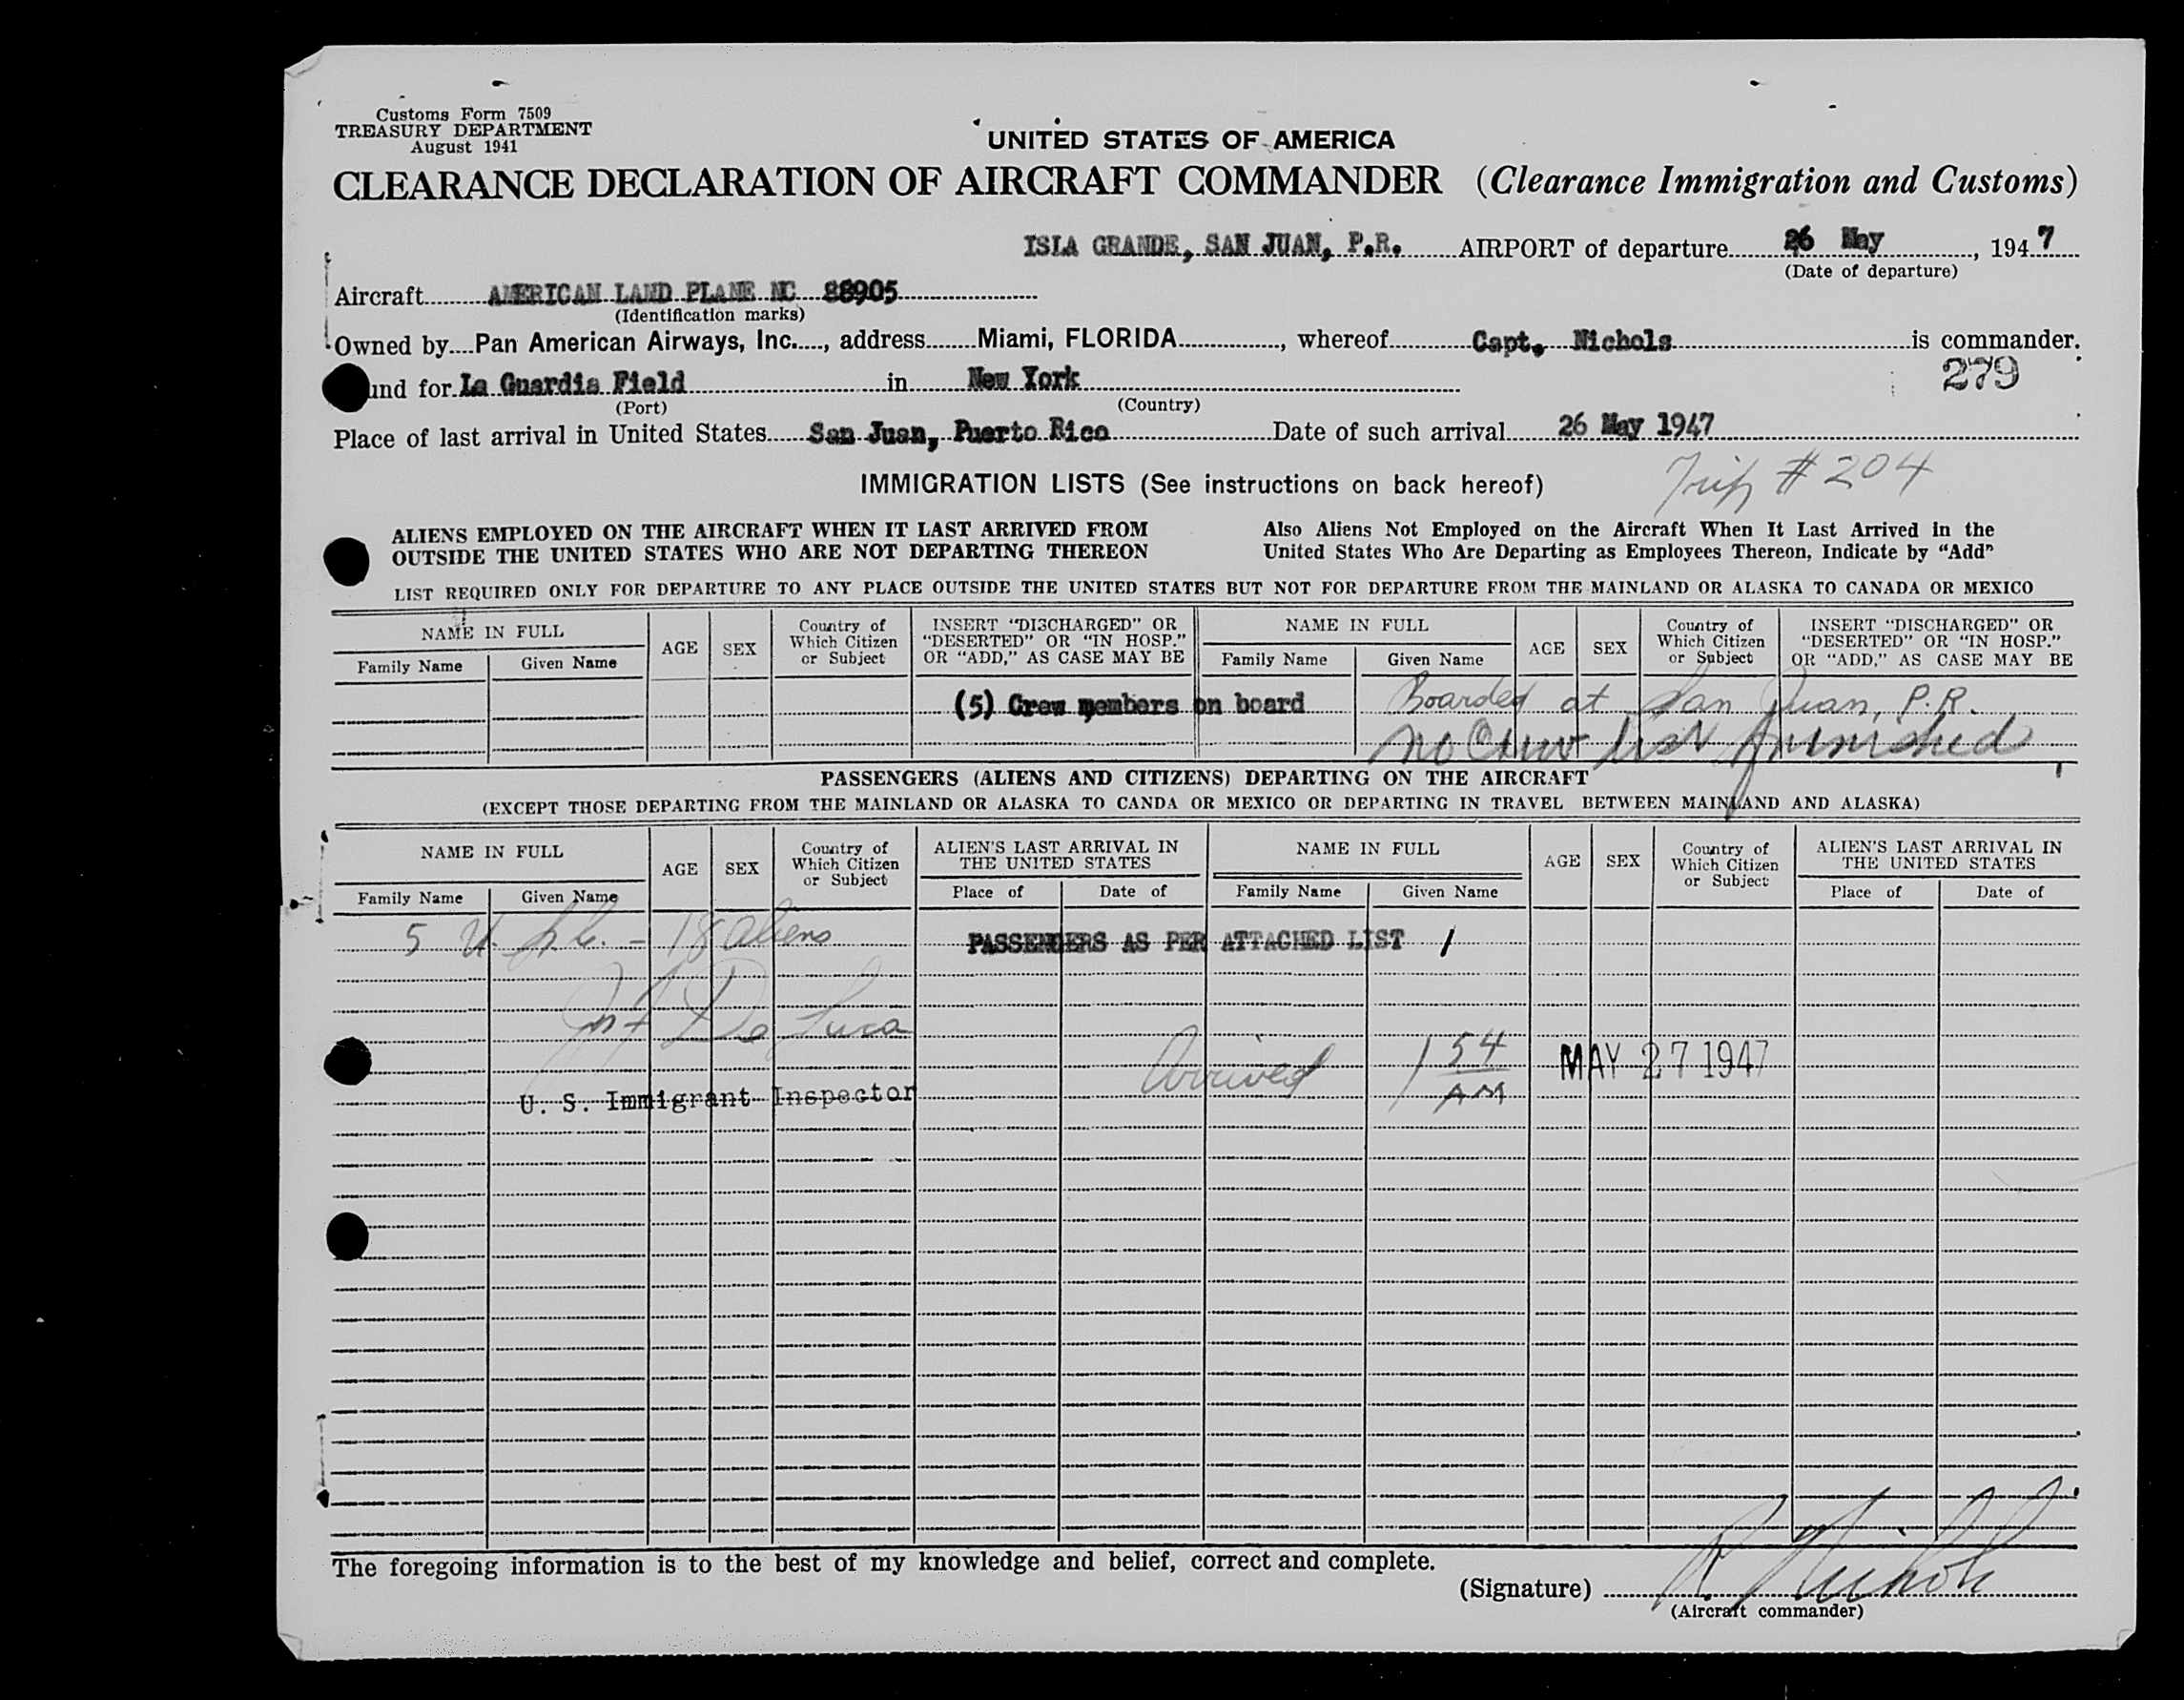 Customs Form 7509
TREASURY DEPARTMENT
August 1941
UNITED STATES OF AMERICA
CLEARANCE DECLARATION OF AIRCRAFT COMMANDER (Clearance Immigration and Customs)
ISLA GRANDE, SAN JUAN, P.R. AIRPORT of departure 26 May, 1947
(Date of departure)
Aircraft AMERICAN LAND PLANE NC 88905
(Identification marks)
Owned by Pan American Airways, Inc., address Miami, FLORIDA, whereof Capt. Nichols is commander.
279
und for La Guardia Field in New York
(Port) (Country)
Place of last arrival in United States San Juan, Puerto Rico Date of such arrival 26 May 1947
Trip # 204
IMMIGRATION LISTS (See instructions on back hereof)
ALIENS EMPLOYED ON THE AIRCRAFT WHEN IT LAST ARRIVED FROM
OUTSIDE THE UNITED STATES WHO ARE NOT DEPARTING THEREON
Also Aliens Not Employed on the Aircraft When It Last Arrived in the
United States Who Are Departing as Employees Thereon, Indicate by “Add”
LIST REQUIRED ONLY FOR DEPARTURE TO ANY PLACE OUTSIDE THE UNITED STATES BUT NOT FOR DEPARTURE FROM THE MAINLAND OR ALASKA TO CANADA OR MEXICO
NAME IN FULL AGE SEX Country of Which Citizen or Subject INSERT “DISCHARGED” OR “DESERTED” OR “IN HOSP.” OR “ADD,” AS CASE MAY BE NAME IN FULL AGE SEX Country of Which Citizen or Subject INSERT “DISCHARGED” OR “DESERTED” OR “IN HOSP.” OR “ADD,” AS CASE MAY BE
Family Name Given Name Family Name Given Name
(5) Crew members on board Boarded at San Juan, P.R.
No Crew list furnished
PASSENGERS (ALIENS AND CITIZENS) DEPARTING ON THE AIRCRAFT
(EXCEPT THOSE DEPARTING FROM THE MAINLAND OR ALASKA TO CANDA OR MEXICO OR DEPARTING IN TRAVEL BETWEEN MAINLAND AND ALASKA)
NAME IN FULL AGE SEX Country of Which Citizen or Subject ALIEN'S LAST ARRIVAL IN THE UNITED STATES NAME IN FULL AGE SEX Country of Which Citizen or Subject ALIEN'S LAST ARRIVAL IN THE UNITED STATES
Family Name Given Name Place of Date of Family Name Given Name Place of Date of
5 U. S. C. - 18 aliens PASSENGERS AS PER ATTACHED LIST 1
De Luca
Arrived 1 54 AM MAY 27 1947
U. S. Immigrant Inspector
The foregoing information is to the best of my knowledge and belief, correct and complete.
(Signature) R Nichols
(Aircraft commander)